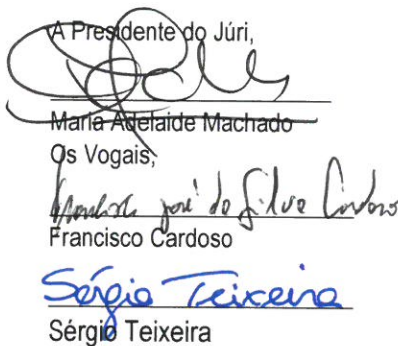 A Presidente do Júri,
Maria Adelaide Machado
Os Vogais,
Francisco José da Silva Cardoso
Francisco Cardoso
Sérgio Teixeira
Sérgio Teixeira